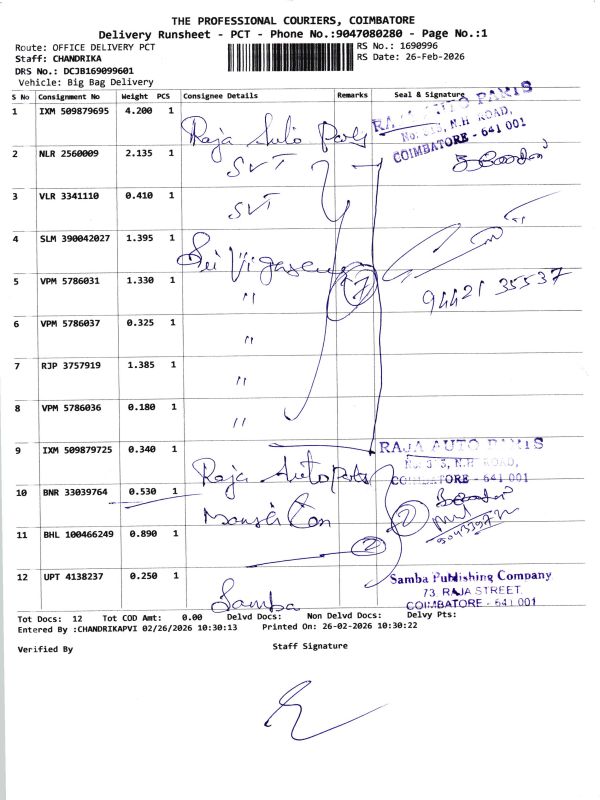 THE PROFESSIONAL COURIERS, COIMBATORE
Delivery Runsheet - PCT - Phone No.:9047080280 - Page No.:1
Route: OFFICE DELIVERY PCT
Staff: CHANDRIKA
DRS No.: DCJB169099601
Vehicle: Big Bag Delivery
RS No.: 1690996
RS Date: 26-Feb-2026
S No Consignment No Weight PCS Consignee Details Remarks Seal & Signature
1 IXM 509879695 4.200 1 Raja Auto Parts
RAJA AUTO PARTS
No. 313, N.H. ROAD,
COIMBATORE - 641 001
2 NLR 2560009 2.135 1 SVT
3 VLR 3341110 0.410 1 SVT
4 SLM 390042027 1.395 1 Sri
5 VPM 5786031 1.330 1 " 7
94421 35537
6 VPM 5786037 0.325 1 "
7 RJP 3757919 1.385 1 "
8 VPM 5786036 0.180 1 "
9 IXM 509879725 0.340 1 Raja Auto Parts
RAJA AUTO PARTS
No. 313, N.H. ROAD,
COIMBATORE - 641 001
10 BNR 33039764 0.530 1
2
11 BHL 100466249 0.890 1
2
12 UPT 4138237 0.250 1 Samba
Samba Publishing Company
73, RAJA STREET,
COIMBATORE - 641 001
Tot Docs: 12 Tot COD Amt: 0.00 Delvd Docs: Non Delvd Docs: Delvy Pts:
Entered By :CHANDRIKAPVI 02/26/2026 10:30:13 Printed On: 26-02-2026 10:30:22
Verified By Staff Signature